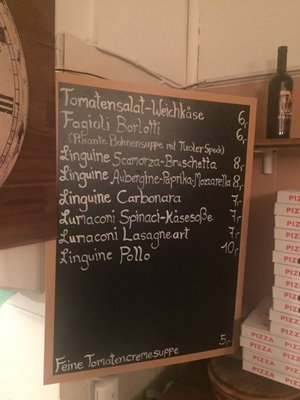 Tomatensalat-Weichkäse 6,-
Fagioli Borlotti 6,-
(Pikante Bohnensuppe mit Tiroler Speck)
Linguine Scamorza-Bruschetta 8,-
Linguine Aubergine-Paprika-Mozzarella 8,-
Linguine Carbonara 7,-
Lumaconi Spinaci-Käsesoße 7,-
Lumaconi Lasagneart 7,-
Linguine Pollo 10,-
Feine Tomatencremesuppe 5,-
PIZZA
PIZZA
PIZZA
PIZZA
PIZZA
PIZZA
PIZZA
PIZZA
PIZZA
PIZZA
PIZZA